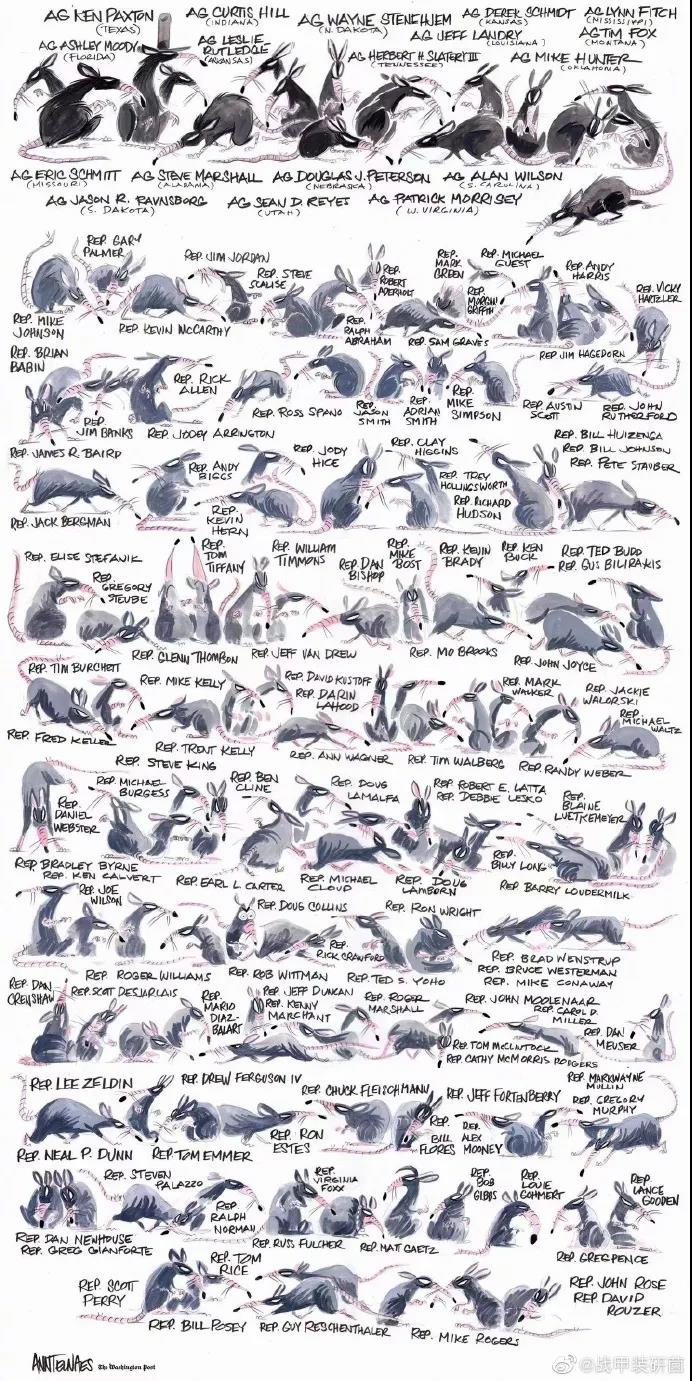 AG KEN PAXTON
(TEXAS)
AG CURTIS HILL
(INDIANA)
AG WAYNE STENEHJEM
(N. DAKOTA)
AG DEREK SCHMIDT
(KANSAS)
AG LYNN FITCH
(MISSISSIPPI)
AG ASHLEY MOODY
(FLORIDA)
AG LESLIE
RUTLEDGE
(ARKANSAS)
AG JEFF LANDRY
(LOUISIANA)
AG TIM FOX
(MONTANA)
AG HERBERT H. SLATERY III
(TENNESSEE)
AG MIKE HUNTER
(OKLAHOMA)
AG ERIC SCHMITT
(MISSOURI)
AG STEVE MARSHALL
(ALABAMA)
AG DOUGLAS J. PETERSON
(NEBRASKA)
AG ALAN WILSON
(S. CAROLINA)
AG JASON R. RAVNSBORG
(S. DAKOTA)
AG SEAN D. REYES
(UTAH)
AG PATRICK MORRISEY
(W. VIRGINIA)
REP. GARY
PALMER
REP. JIM JORDAN
REP. STEVE
SCALISE
REP.
ROBERT
ADERHOLT
REP.
MARK
GREEN
REP. MICHAEL
GUEST
REP. ANDY
HARRIS
REP. VICKY
HARTZLER
REP.
MORGAN
GRIFFITH
REP. MIKE
JOHNSON
REP. KEVIN McCARTHY
REP.
RALPH
ABRAHAM
REP. SAM GRAVES
REP. JIM HAGEDORN
REP. BRIAN
BABIN
REP. RICK
ALLEN
REP.
JIM BANKS
REP. JODEY ARRINGTON
REP. ROSS SPANO
REP.
JASON
SMITH
REP.
ADRIAN
SMITH
REP.
MIKE
SIMPSON
REP. AUSTIN
SCOTT
REP. JOHN
RUTHERFORD
REP. JAMES R. BAIRD
REP. ANDY
BIGGS
REP. JODY
HICE
REP. CLAY
HIGGINS
REP. BILL HUIZENGA
REP. BILL JOHNSON
REP. PETE STAUBER
REP. TREY
HOLLINGSWORTH
REP. RICHARD
HUDSON
REP. JACK BERGMAN
REP.
KEVIN
HERN
REP. ELISE STEFANIK
REP.
GREGORY
STEUBE
REP.
TOM
TIFFANY
REP. WILLIAM
TIMMONS
REP. DAN
BISHOP
REP.
MIKE
BOST
REP. KEVIN
BRADY
REP. KEN
BUCK
REP. TED BUDD
REP. GUS BILIRAKIS
REP. GLENN THOMPSON
REP. JEFF VAN DREW
REP. MO BROOKS
REP. JOHN JOYCE
REP. TIM BURCHETT
REP. MIKE KELLY
REP. DAVID KUSTOFF
REP. DARIN
LAHOOD
REP. MARK
WALKER
REP. JACKIE
WALORSKI
REP.
MICHAEL
WALTZ
REP. FRED KELLER
REP. TRENT KELLY
REP. ANN WAGNER
REP. TIM WALBERG
REP. RANDY WEBER
REP. STEVE KING
REP. MICHAEL
BURGESS
REP. BEN
CLINE
REP. DOUG
LAMALFA
REP. ROBERT E. LATTA
REP. DEBBIE LESKO
REP.
BLAINE
LUETKEMEYER
REP.
DANIEL
WEBSTER
REP. BRADLEY BYRNE
REP. KEN CALVERT
REP. EARL L. CARTER
REP. MICHAEL
CLOUD
REP. DOUG
LAMBORN
REP.
BILLY LONG
REP. BARRY LOUDERMILK
REP. JOE
WILSON
REP. DOUG COLLINS
REP. RON WRIGHT
REP. ROGER WILLIAMS
REP. ROB WITTMAN
REP.
RICK CRAWFORD
REP. TED S. YOHO
REP. BRAD WENSTRUP
REP. BRUCE WESTERMAN
REP. MIKE CONAWAY
REP. DAN
CRENSHAW
REP. SCOT DESJARLAIS
REP.
MARIO
DIAZ-
BALART
REP. JEFF DUNCAN
REP. KENNY
MARCHANT
REP. ROGER
MARSHALL
REP. JOHN MOOLENAAR
REP. CAROL D.
MILLER
REP. DAN
MEUSER
REP. TOM McCLINTOCK
REP. CATHY McMORRIS RODGERS
REP. LEE ZELDIN
REP. DREW FERGUSON IV
REP. CHUCK FLEISCHMANN
REP. JEFF FORTENBERRY
REP. MARKWAYNE
MULLIN
REP. GREGORY
MURPHY
REP. NEAL P. DUNN
REP. TOM EMMER
REP. RON
ESTES
REP.
BILL
FLORES
REP.
ALEX
MOONEY
REP. STEVEN
PALAZZO
REP.
RALPH
NORMAN
REP.
VIRGINIA
FOXX
REP.
BOB
GIBBS
REP.
LOUIE
GOHMERT
REP.
LANCE
GOODEN
REP. DAN NEWHOUSE
REP. GREG GIANFORTE
REP. RUSS FULCHER
REP. MATT GAETZ
REP. GREG PENCE
REP. SCOTT
PERRY
REP. TOM
RICE
REP. JOHN ROSE
REP. DAVID
ROUZER
REP. BILL POSEY
REP. GUY RESCHENTHALER
REP. MIKE ROGERS
ANN TELNAES
The Washington Post
@战甲装研菌